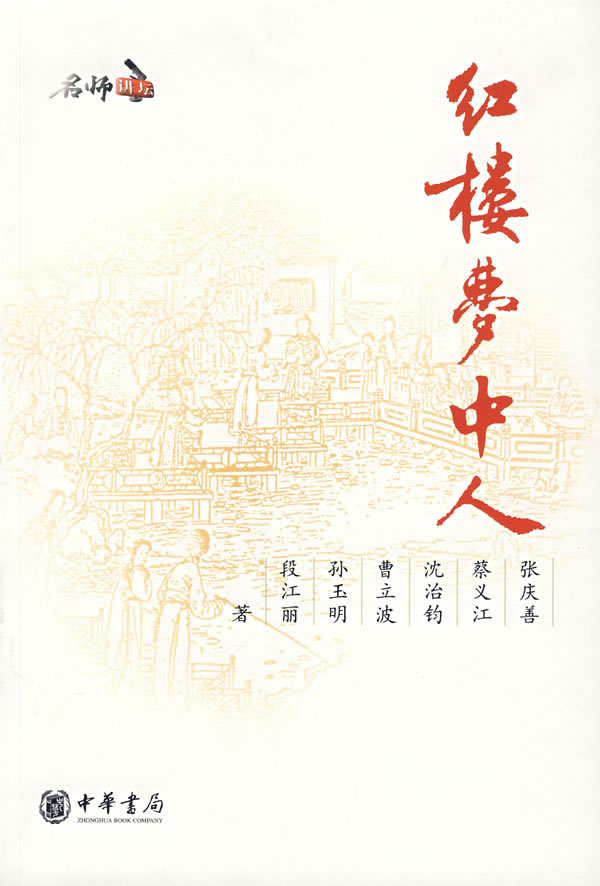 名师讲坛
红楼梦中人
张庆善
蔡义江
沈治钧
曹立波
孙玉明
段江丽
著
中华書局
ZHONGHUA BOOK COMPANY